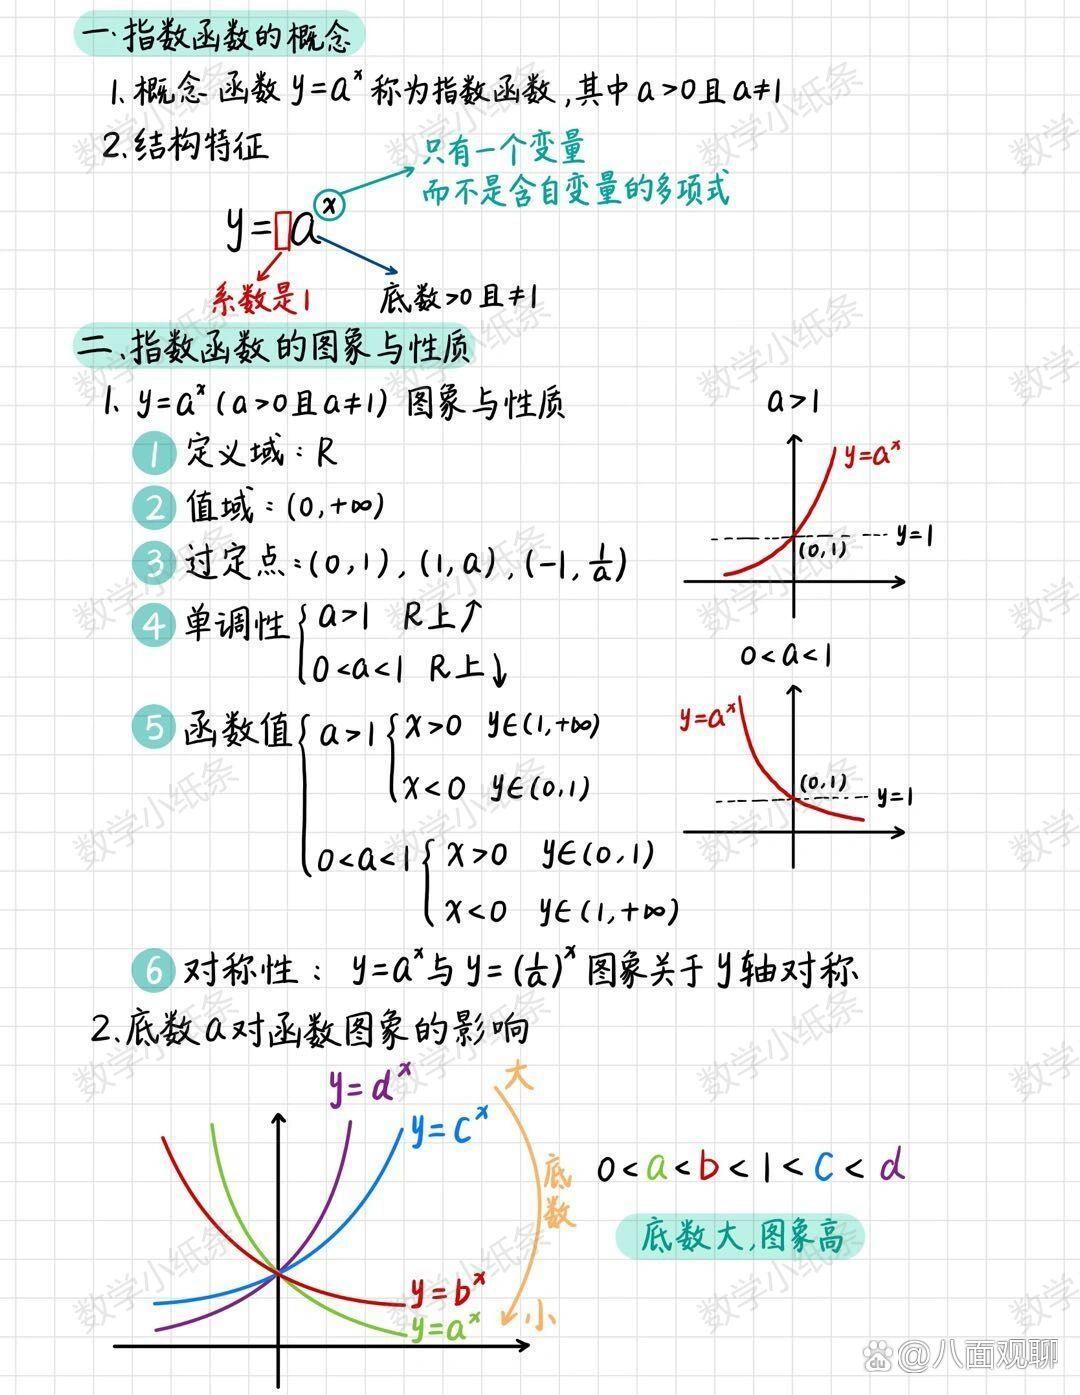 一.指数函数的概念
1.概念 函数y=aˣ称为指数函数,其中a>0且a≠1
2.结构特征
只有一个变量
而不是含自变量的多项式
y=▯aˣ
系数是1
底数>0且≠1
二.指数函数的图象与性质
1. y=aˣ(a>0且a≠1) 图象与性质
a>1
y=aˣ
y=1
(0,1)
① 定义域:R
② 值域:(0,+∞)
③ 过定点:(0,1),(1,a),(-1,1/a)
④ 单调性{a>1 R上↑
0<a<1 R上↓
0<a<1
y=aˣ
(0,1)
y=1
⑤ 函数值{a>1{x>0 y∈(1,+∞)
x<0 y∈(0,1)
0<a<1{x>0 y∈(0,1)
x<0 y∈(1,+∞)
⑥ 对称性: y=aˣ与y=(1/a)ˣ图象关于y轴对称
2.底数a对函数图象的影响
y=dˣ
y=cˣ
大
底数
小
y=bˣ
y=aˣ
0<a<b<1<c<d
底数大,图象高
数学小纸条
Bai du @八面观聊